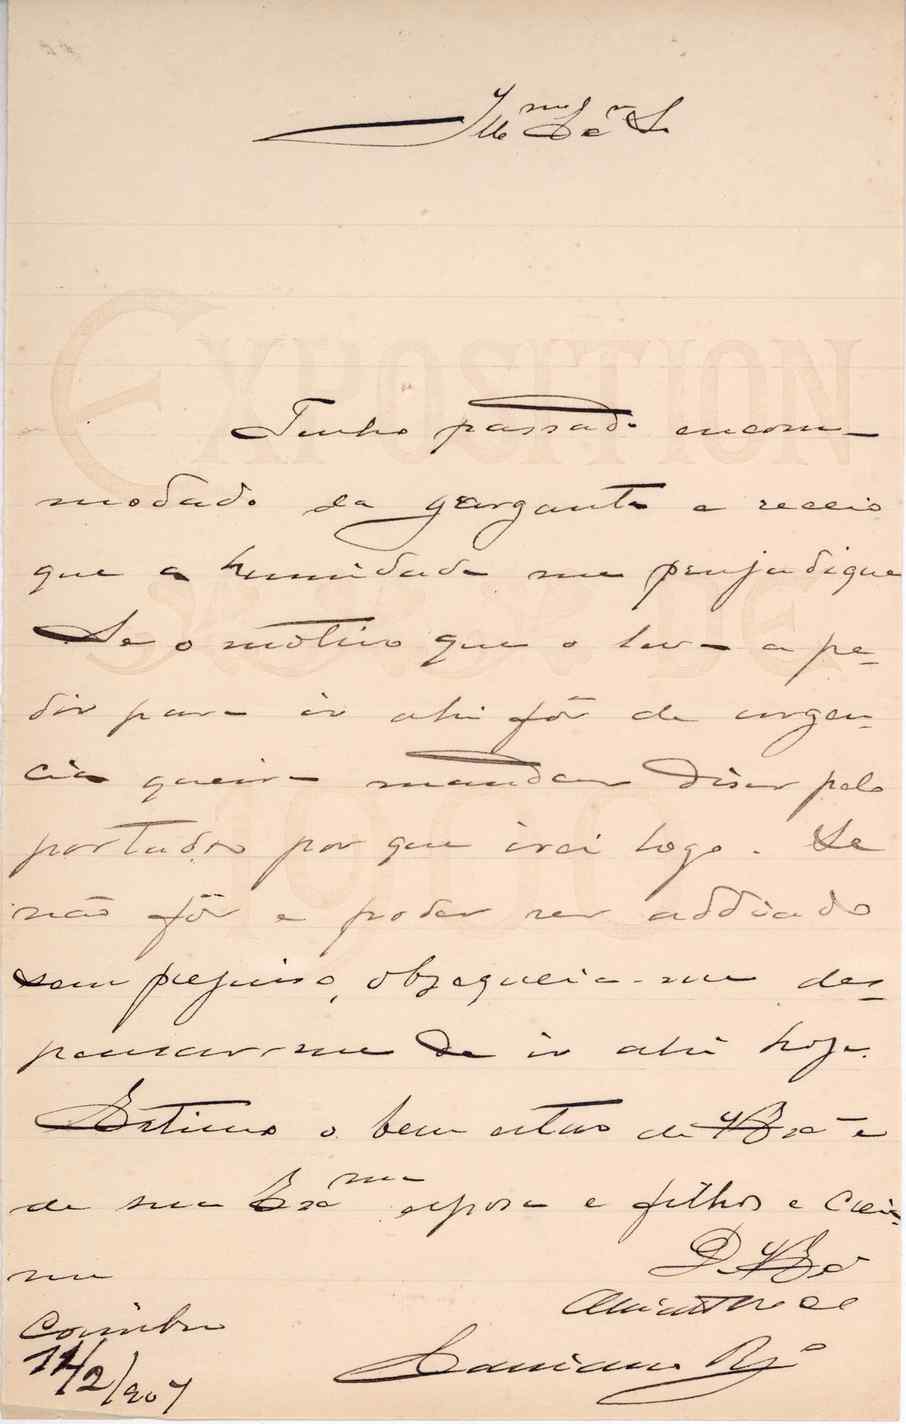 Illmo Sr.
EXPOSITION
Tenho passado encom-
modado da garganta e receio
que a humidade me prejudique
Se o motivo que o leva a pe-
dir para ir ahi fôr de urgen-
cia queira mandar diser pelo
portador por que irei logo. Se
DE
1900
não fôr e poder ser addiado
sem prejuiso, obzequeia-me des-
pensar-me de ir ahi hoje.
Estimo o bem estar de V. Exa e
de sua Exma esposa e filhos e creia-
me
D. V. Exa
Coimbra
11/2/907